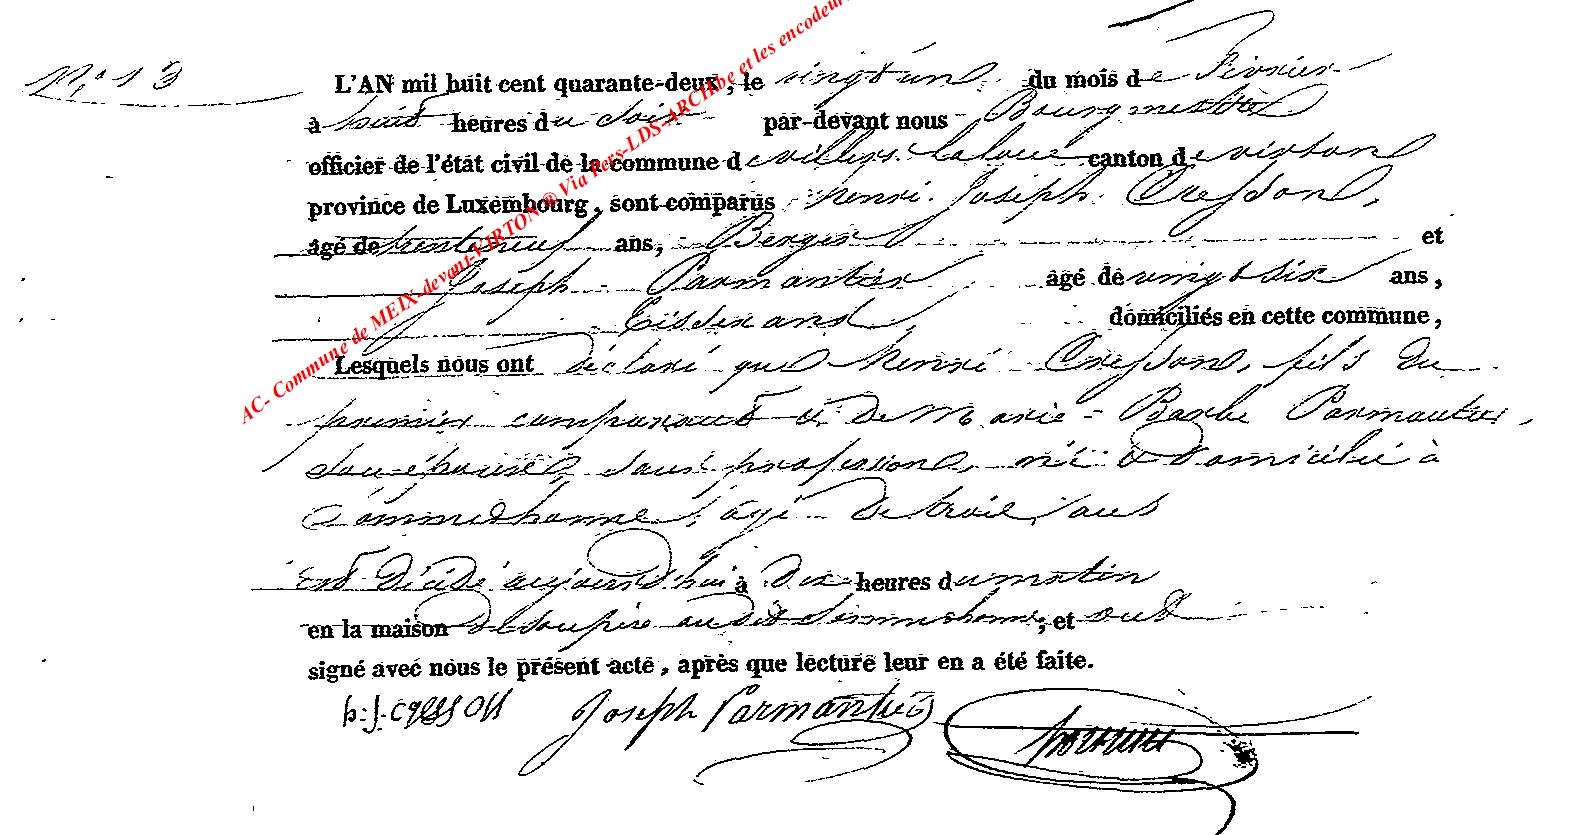 N.º 13
L'AN mil huit cent quarante-deux, le vingt un du mois de Février
à huit heures du soir par-devant nous Bourgmestre
officier de l'état civil de la commune de villers-laloue canton de virton
province de Luxembourg, sont comparus henri Joseph Cresson,
âgé de trente neuf ans, Berger et
Joseph Parmantier âgé de vingt six ans,
Tisserand, domiciliés en cette commune,
Lesquels nous ont déclaré que henri Cresson, fils du
premier comparant et de Marie-Barbe Parmantier,
son épouse, sans profession, né et domicilié à
Sommethonne, agé de trois ans
est décédé aujourd'hui à dix heures du matin
en la maison de son père audit Sommethonne; et ont
signé avec nous le présent acte, après que lecture leur en a été faite.
h: j. cresson Joseph Parmantier
AC- Commune de MEIX-devant-VIRTON ® Via Pers-LDS-ARCH.be et les encodeurs